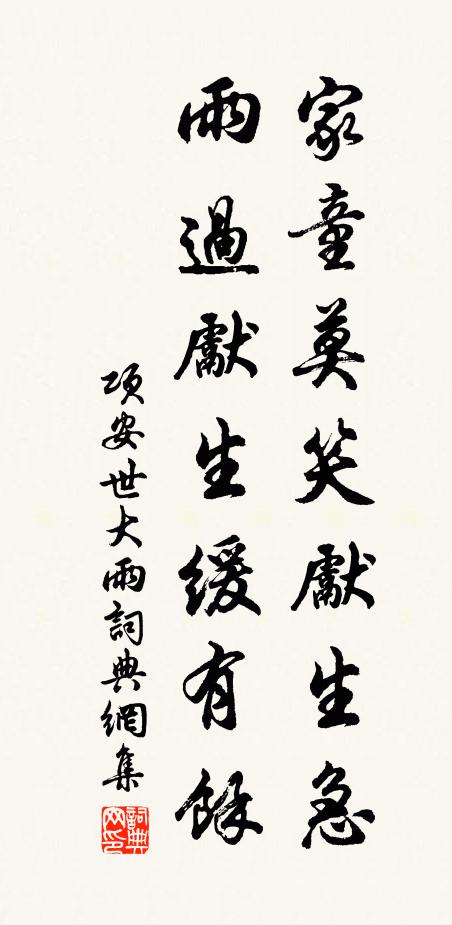 家童莫笑獻生急
雨過獻生緩有餘
項安世大雨詞典網集
詞典网印